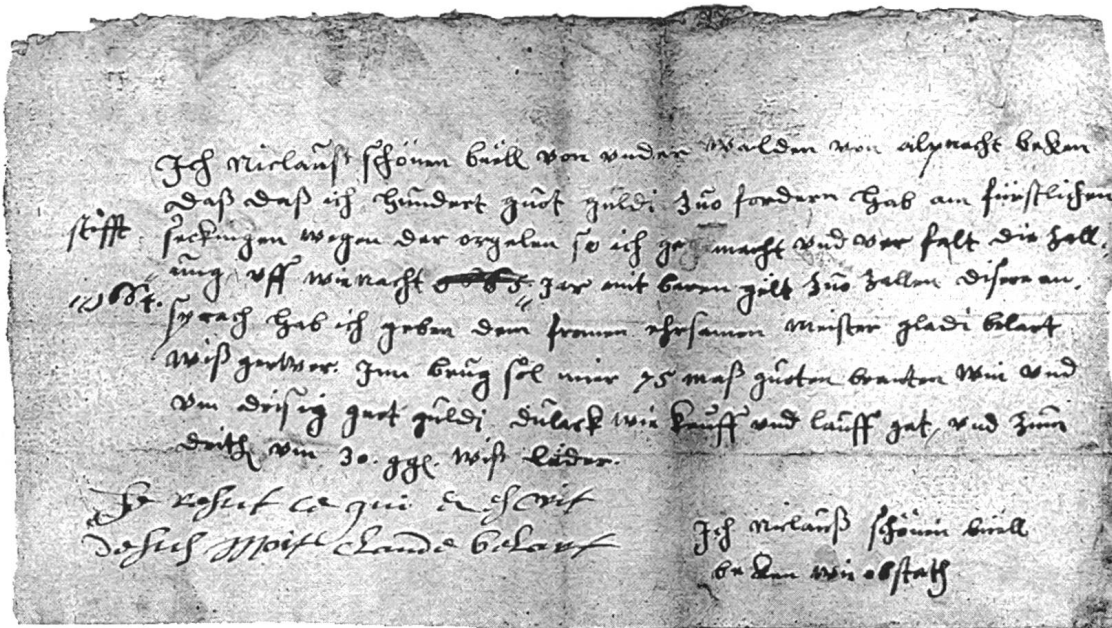 Ich Niclauß schönen büell von vnder walden von alpnacht beken
daß daß ich hundert guot guldi zuo fordern hab am fürstlichen
stifft seckingen wegen der orgelen so ich gemacht vnd ver falt die zall
ung vff wienacht jar mit baren gelt zuo zallen dise an
sprach hab ich geben dem fromen ehrsamen meister gladi belart
wiß gerwer. Inn brug sol mir 75 maß guoten branten win vnd
vm drisig guot guldi duback wie kauff vnd lauff gat, vnd zum
drith vm 30. ggl. wiß läder.
Je Clande belart
Ich Niclauß schönen büell
beken wie obstath